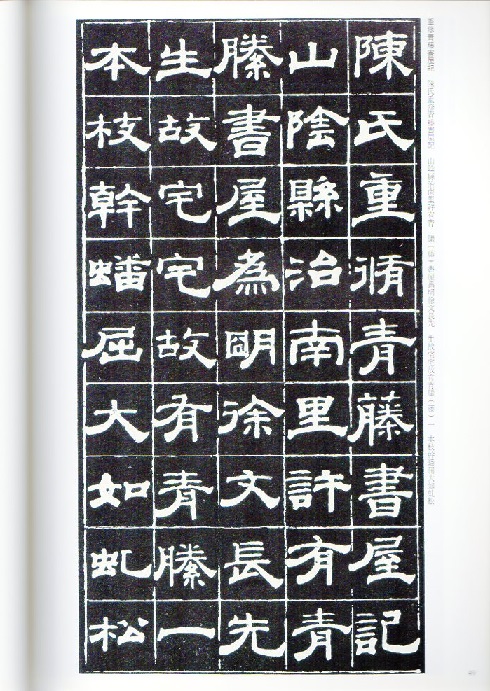 陳氏重脩青藤書屋記
山陰縣治南里許有青
滕書屋為朙徐文長先
生故宅宅故有青滕一
本枝幹蟠屈大如虬松